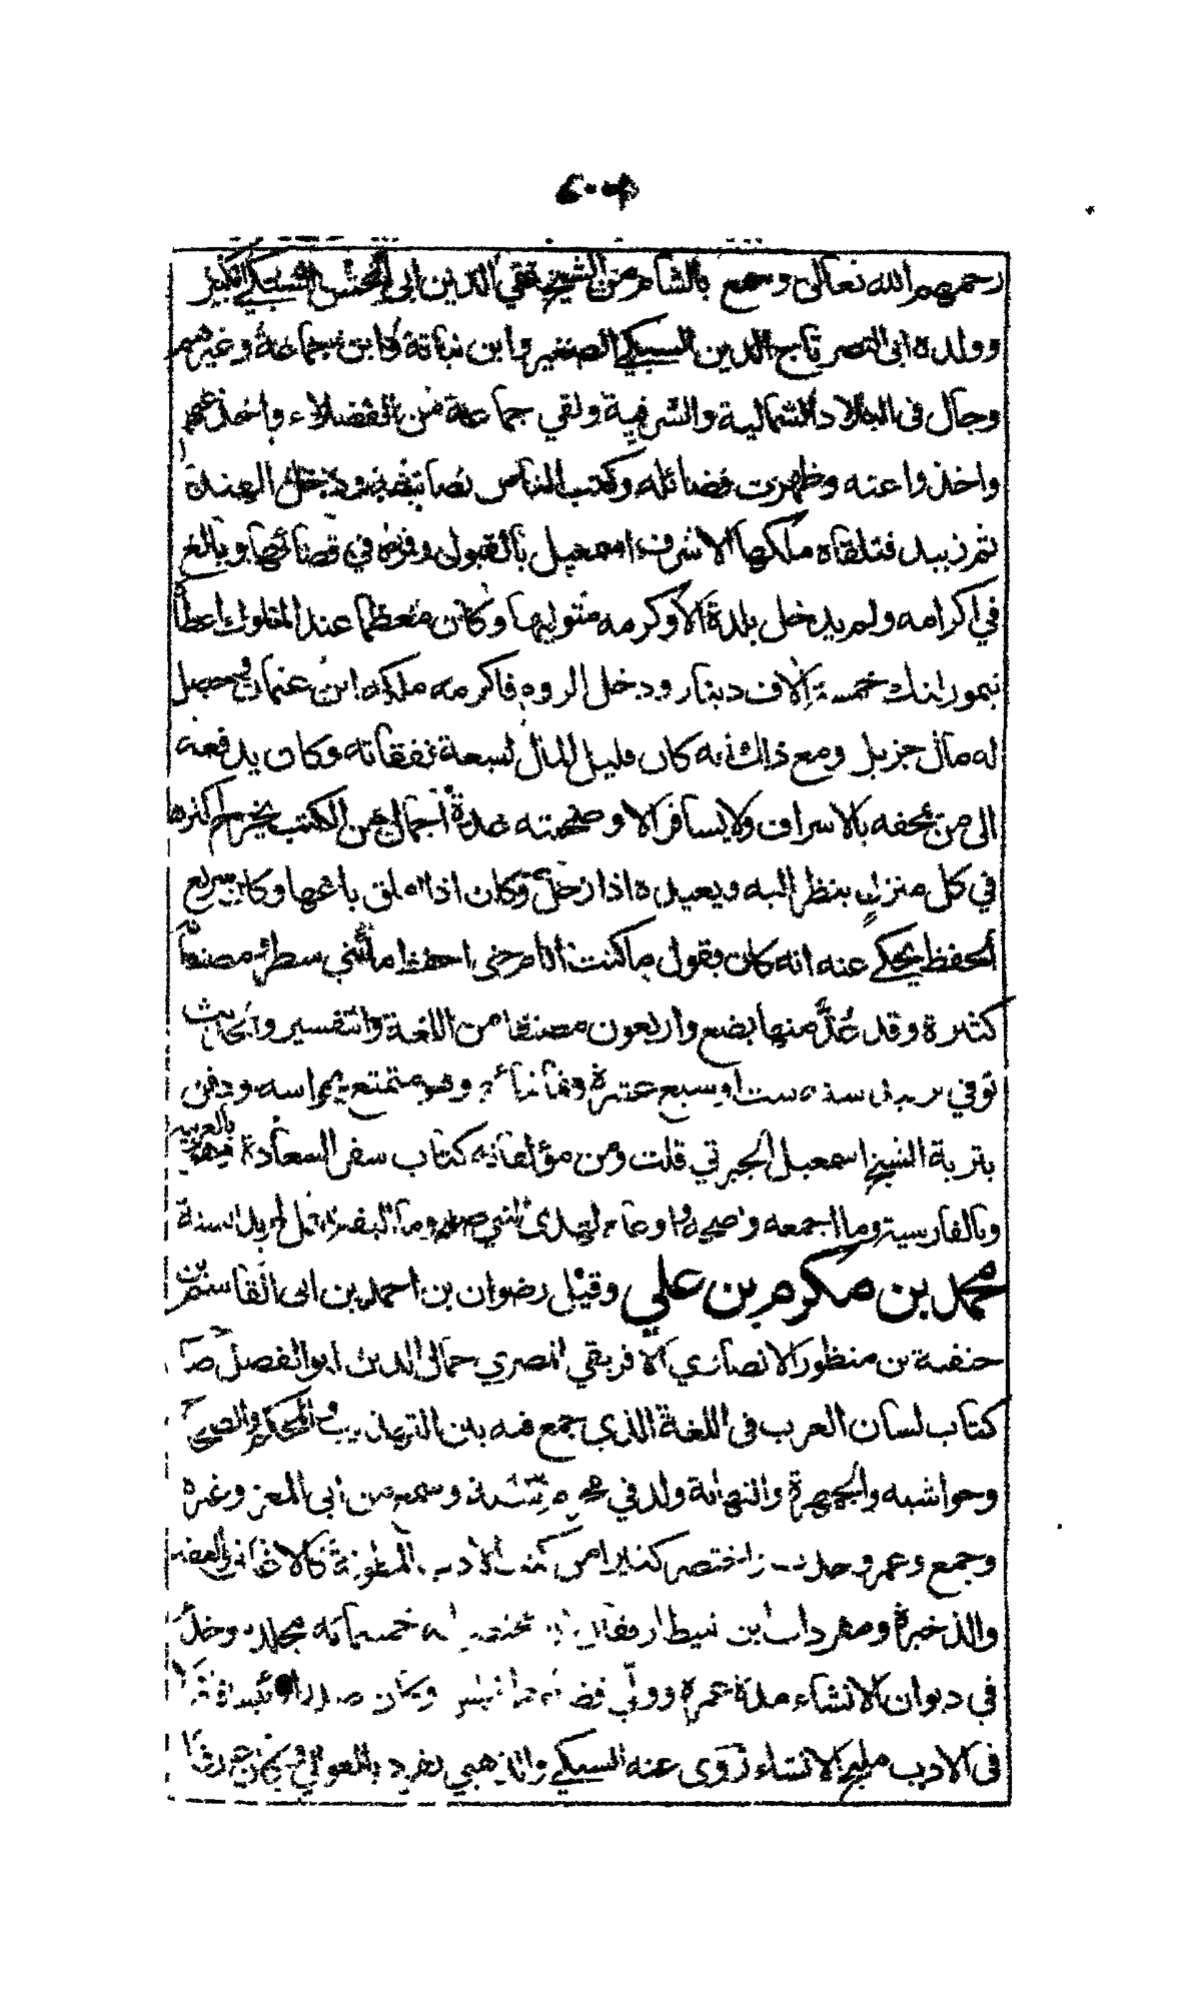 رحمهم الله تعالى وسمع بالشام من الشيخ تقي الدين ابى الحسن السبكي الكبير
وولده ابى النصر تاج الدين السبكي الصغير وابن نباتة وابن جماعة وغيرهم
وجال فى البلاد الشمالية والشرقية ولقي جماعة من الفضلاء واخذ عنهم
واخذوا عنه وظهرت فضائله وكتب الناس تصانيفه ودخل الهند
ثم زبيد فتلقاه ملكها الاشرف اسمعيل بالقبول وقرره في قضائها وبالغ
في اكرامه ولم يدخل بلدة الا وكرمه متوليها وكان معظما عند الملوك اعطاه
تيمورلنك خمسة آلاف دينار ودخل الروم فاكرمه ملكه ابن عثمان وحصل
له مال جزيل ومع ذلك انه كان قليل المال لسعة نفقاته وكان يدفعه
الى من يمحقه بالاسراف ولا يسافر الا وصحبته عدة أجمال من الكتب يخرج اكثرها
في كل منزل ينظر اليه ويعيده اذا رحل وكان اذا املق باعها وكان سريع
الحفظ يحكى عنه انه كان يقول ما كنت انام حتى احفظ مائتي سطر مصنفاته
كثيرة وقد عُدَّ منها بضع واربعون مصنفا من اللغة والتفسير والحديث
توفي بزبيد سنة ست او سبع عشرة وثمانمائة وهو متمتع بحواسه ودفن
بتربة الشيخ اسمعيل الجبرتي قلت ومن مؤلفاته كتاب سفر السعادة بالعربية
وبالفارسية وما اجمعه
محمد بن مكرم بن علي وقيل رضوان بن احمد بن ابى القاسم بن
حنفية بن منظور الانصاري الافريقي المصري جمال الدين ابو الفضل صاحب
كتاب لسان العرب فى اللغة الذى جمع فيه بين التهذيب والمحكم والصحاح
وحواشيه والجمهرة والنهاية ولد في محرم وسمع من ابى المعز وغيره
وجمع وعمر وحدث واختصر كثيرا من كتب الادب المطولة كالاغاني والعقد
والذخيرة ومفردات ابن بيطار خمسمائة مجلد وخدم
فى ديوان الانشاء مدة عمره وولي وكان صدرا رئيسا
فى الادب مليح الانشاء روى عنه السبكي والذهبي تفرد بالعوالي